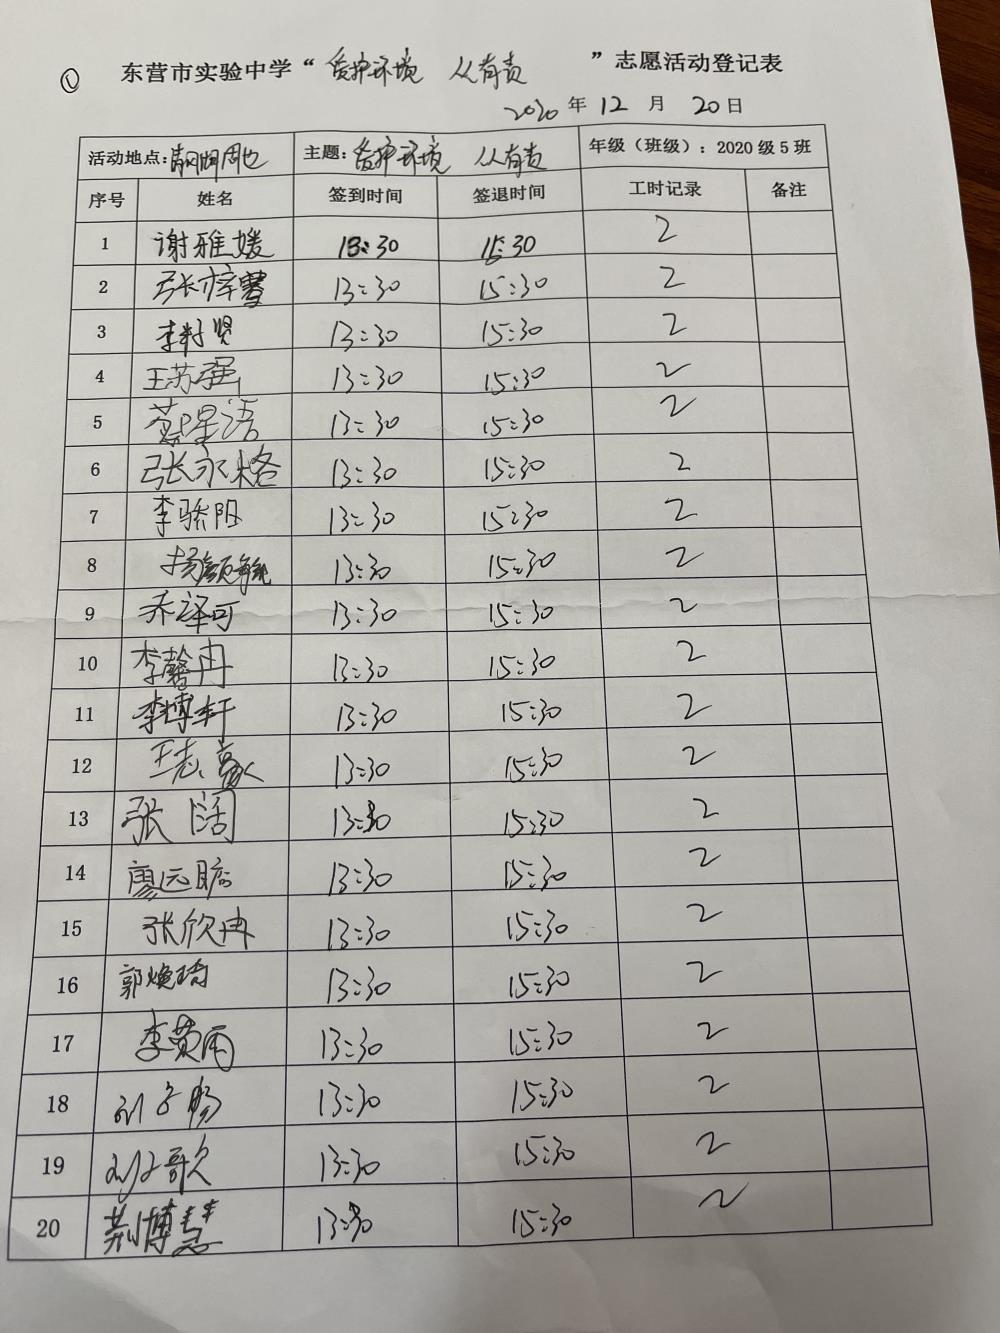 ① 东营市实验中学“爱护环境 人人有责”志愿活动登记表
2020 年 12 月 20 日
活动地点: 主题: 爱护环境 人人有责 年级（班级）: 2020 级 5 班
序号 姓名 签到时间 签退时间 工时记录 备注
1 谢雅媛 13:30 15:30 2
2 张梓雪 13:30 15:30 2
3 李籽贤 13:30 15:30 2
4 王苏强 13:30 15:30 2
5 蔡星语 13:30 15:30 2
6 张永格 13:30 15:30 2
7 李骄阳 13:30 15:30 2
8 杨颜毓 13:30 15:30 2
9 乔泽可 13:30 15:30 2
10 李馨冉 13:30 15:30 2
11 李博轩 13:30 15:30 2
12 王志豪 13:30 15:30 2
13 张阔 13:30 15:30 2
14 廖远 13:30 15:30 2
15 张欣冉 13:30 15:30 2
16 郭焕琦 13:30 15:30 2
17 李黄雨 13:30 15:30 2
18 刘子畅 13:30 15:30 2
19 刘子歌 13:30 15:30 2
20 荆博慧 13:30 15:30 2